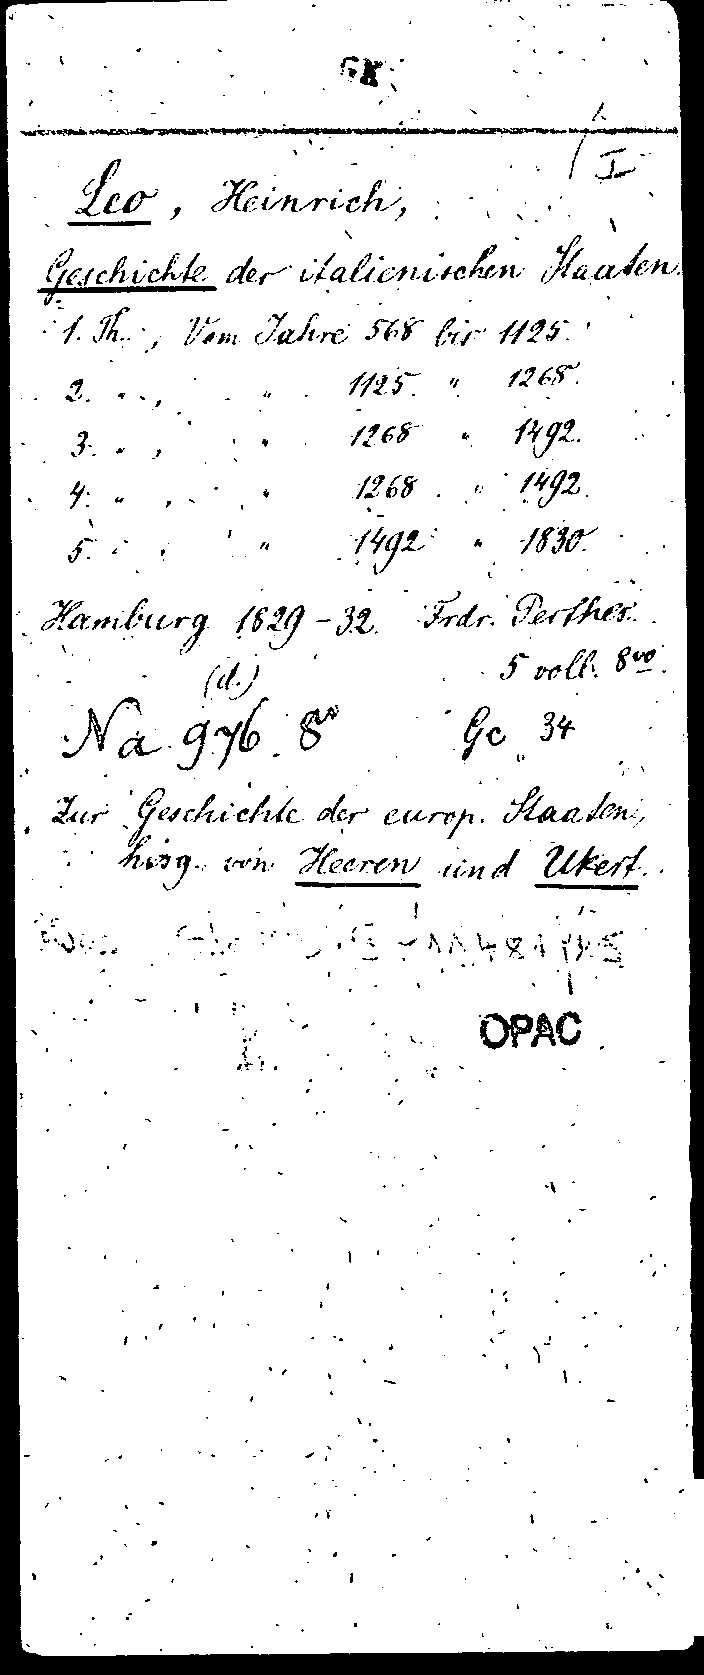 GK
I
Leo, Heinrich,
Geschichte der italienischen Staaten.
1. Th., Vom Jahre 568 bis 1125.
2. " , " 1125. " 1268.
3. " , " 1268 " 1492.
4. " , " 1268 " 1492.
5. " , " 1492 " 1830.
Hamburg 1829-32. Frdr. Perthes.
(d.) 5 voll. 8vo.
Na 976. 8vo Gc 34
Zur Geschichte der europ. Staaten,
hrsg. von Heeren und Ukert.
OPAC